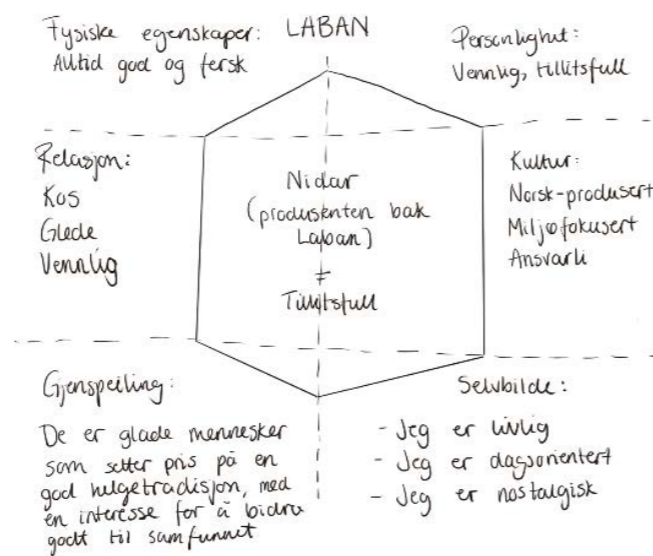 LABAN
Fysiske egenskaper:
Alltid god og fersk
Personlighet:
Vennlig, tillitsfull
Relasjon:
Kos
Glede
Vennlig
Nidar
(produsenten bak
Laban)
≠
Tillitsfull
Kultur:
Norsk-produsert
Miljøfokusert
Ansvarli
Gjenspeiling:
De er glade mennesker
som setter pris på en
god helgetradisjon, med
en interesse for å bidra
godt til samfunnet
Selvbilde:
- Jeg er livlig
- Jeg er dagsorientert
- Jeg er nostalgisk